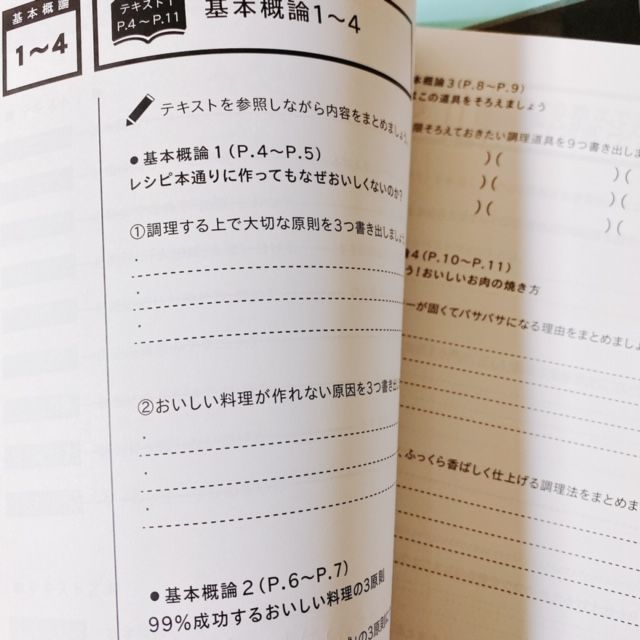 基本概論
1～4
テキスト1
P.4～P.11
基本概論1～4
テキストを参照しながら内容をまとめましょう。
●基本概論1(P.4～P.5)
レシピ本通りに作ってもなぜおいしくないのか?
①調理する上で大切な原則を3つ書き出しましょう
・
・
・
②おいしい料理が作れない原因を3つ書き出
・
・
・
●基本概論2(P.6～P.7)
99%成功するおいしい料理の3原則
の3原則に
本概論3(P.8～P.9)
はこの道具をそろえましょう
そろえておきたい調理道具を9つ書き出しま
)( )(
)( )(
)( )(
論4(P.10～P.11)
う!おいしいお肉の焼き方
ーが固くてパサパサになる理由をまとめましょ
、ふっくら香ばしく仕上げる調理法をまとめま